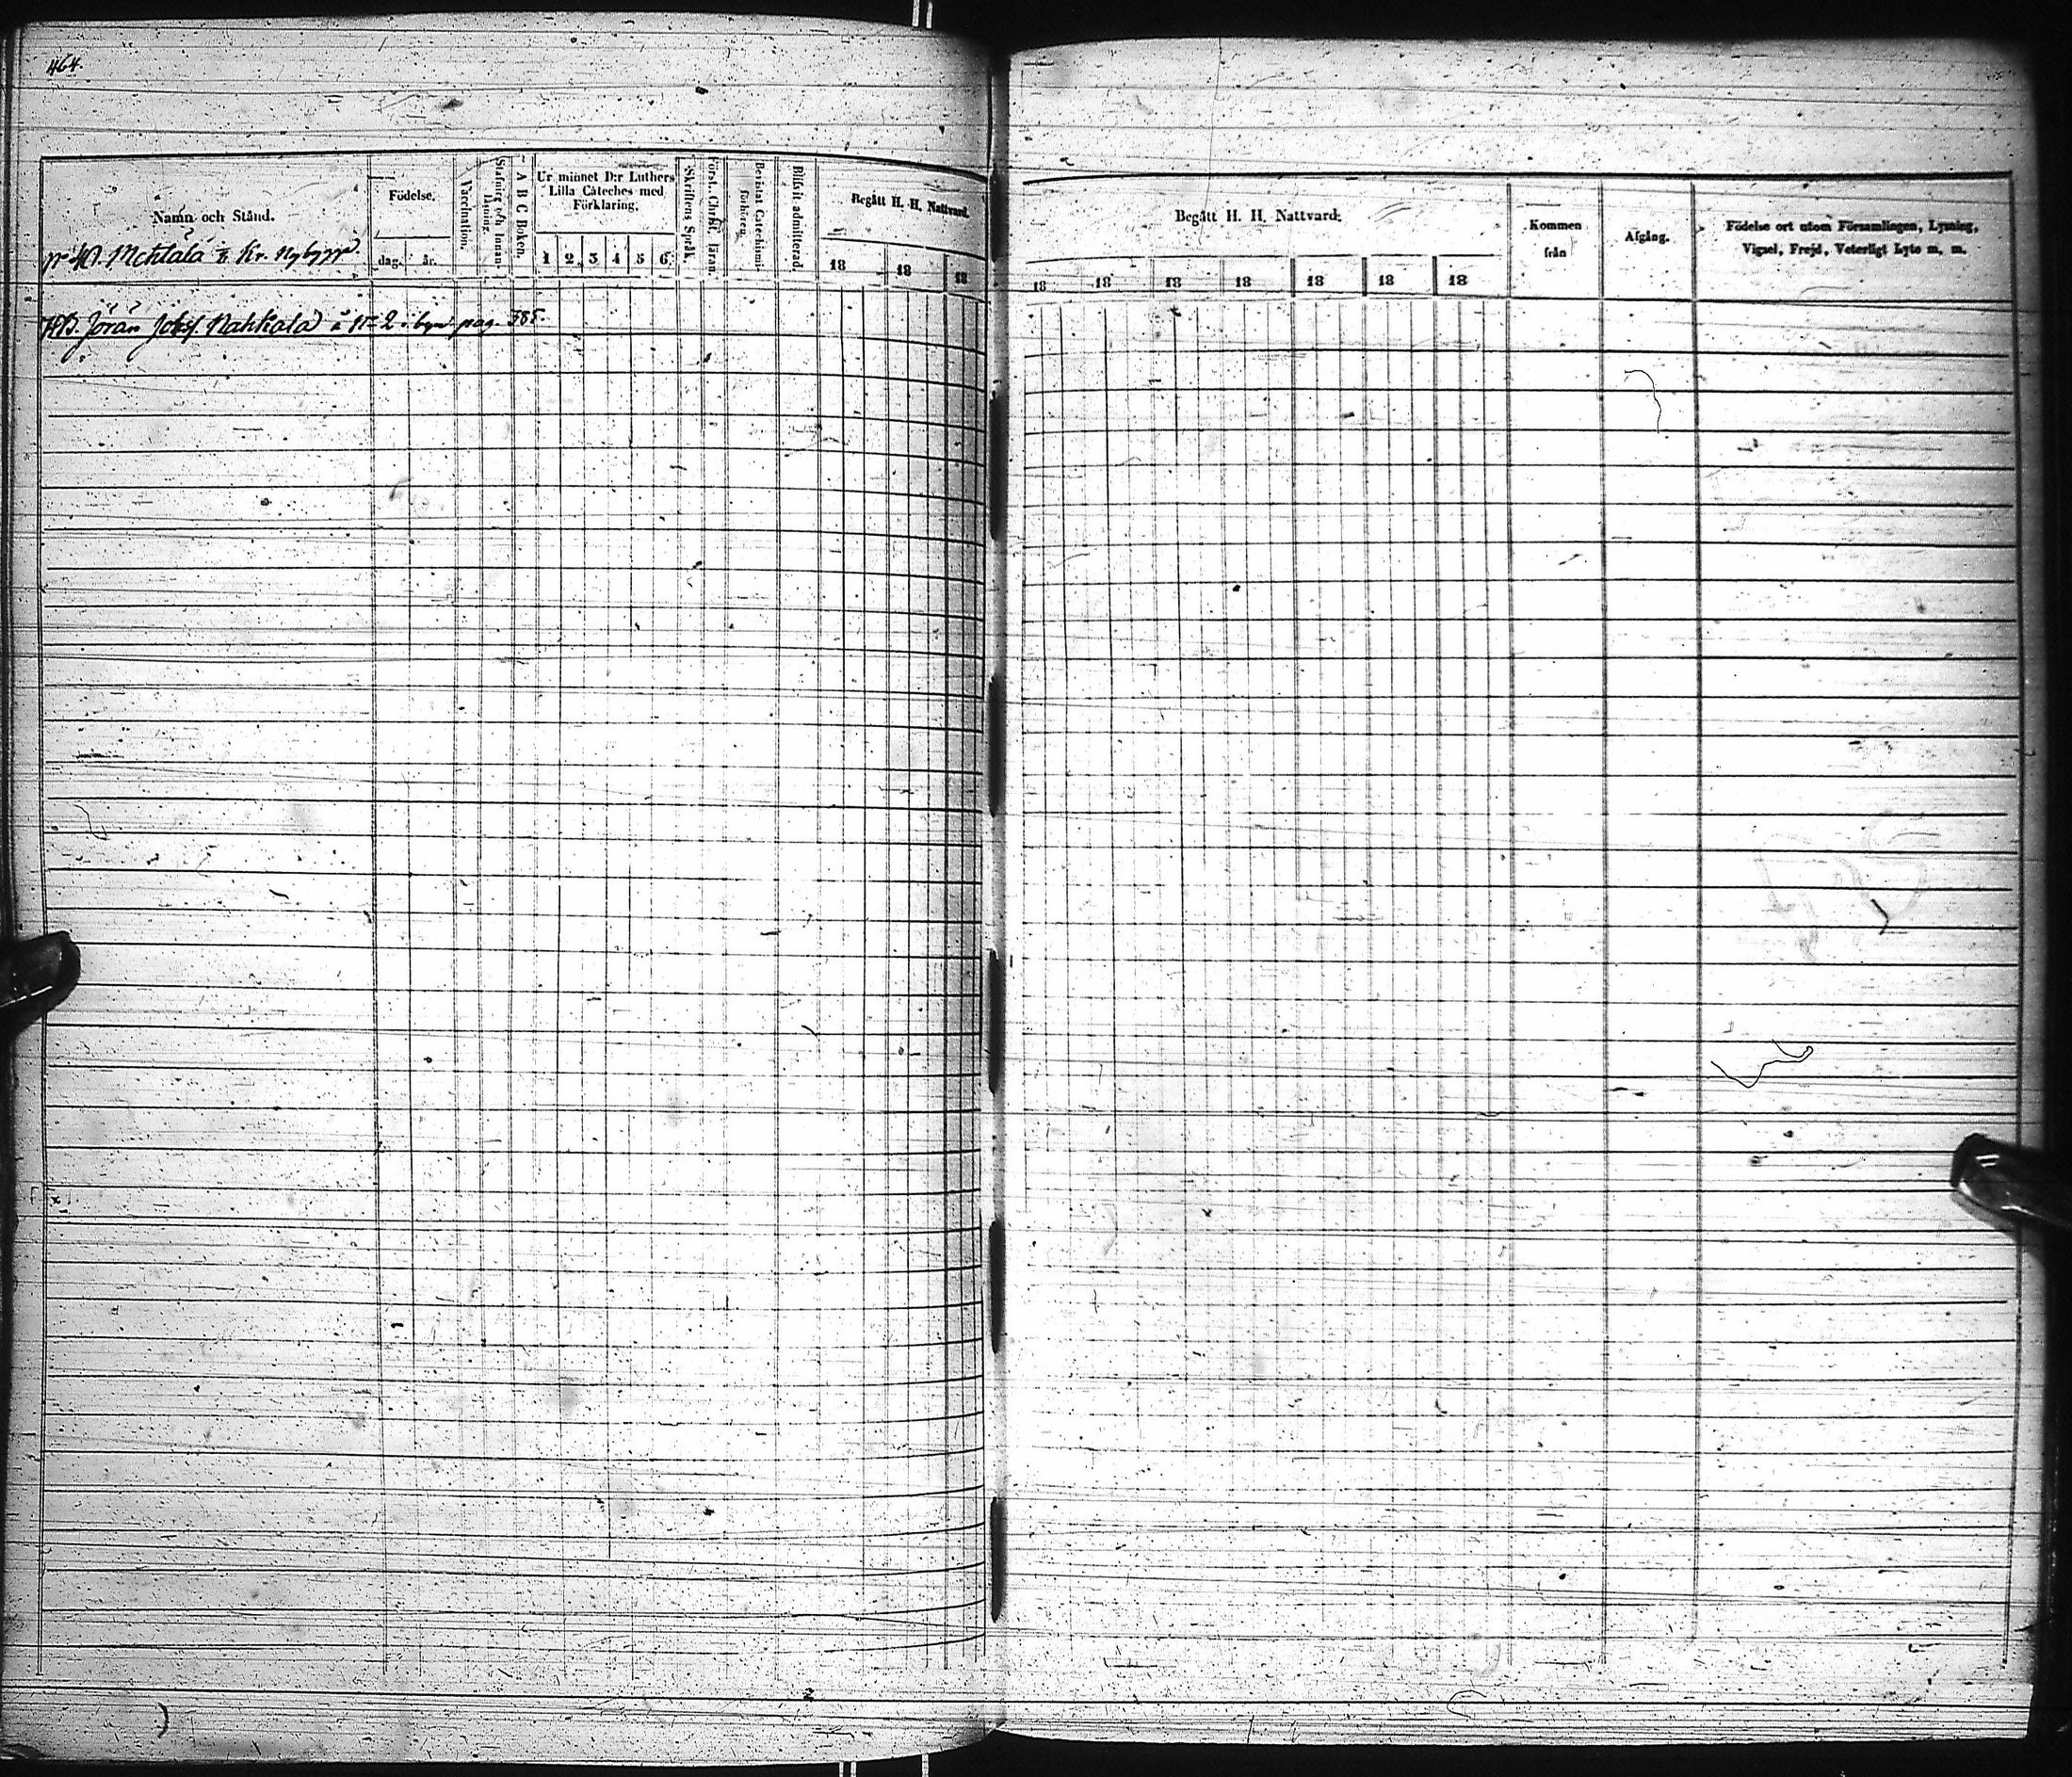 464.
Namn och Stånd.
Födelse.
dag. år.
Vaccination.
Stafning och Innanläsning.
A B C Boken.
Ur minnet D:r Luthers Lilla Cateches med Förklaring.
1 2 3 4 5 6
Skriftens Språk.
Först. Christ. läran.
Bevistat Catechismiförhören.
Blifvit admitterad.
Begått H. H. Nattvard.
18 18 18
Begått H. H. Nattvard.
18 18 18 18 18 18 18
Kommen från
Afgång.
Födelse ort utom Församlingen, Lysning, Vigsel, Frejd, Veterligt Lyte m. m.
N:o 40. Mehtälä Kr. Nybygge.
Jöran Nahkala å N:o 2 i byn pag. 385.